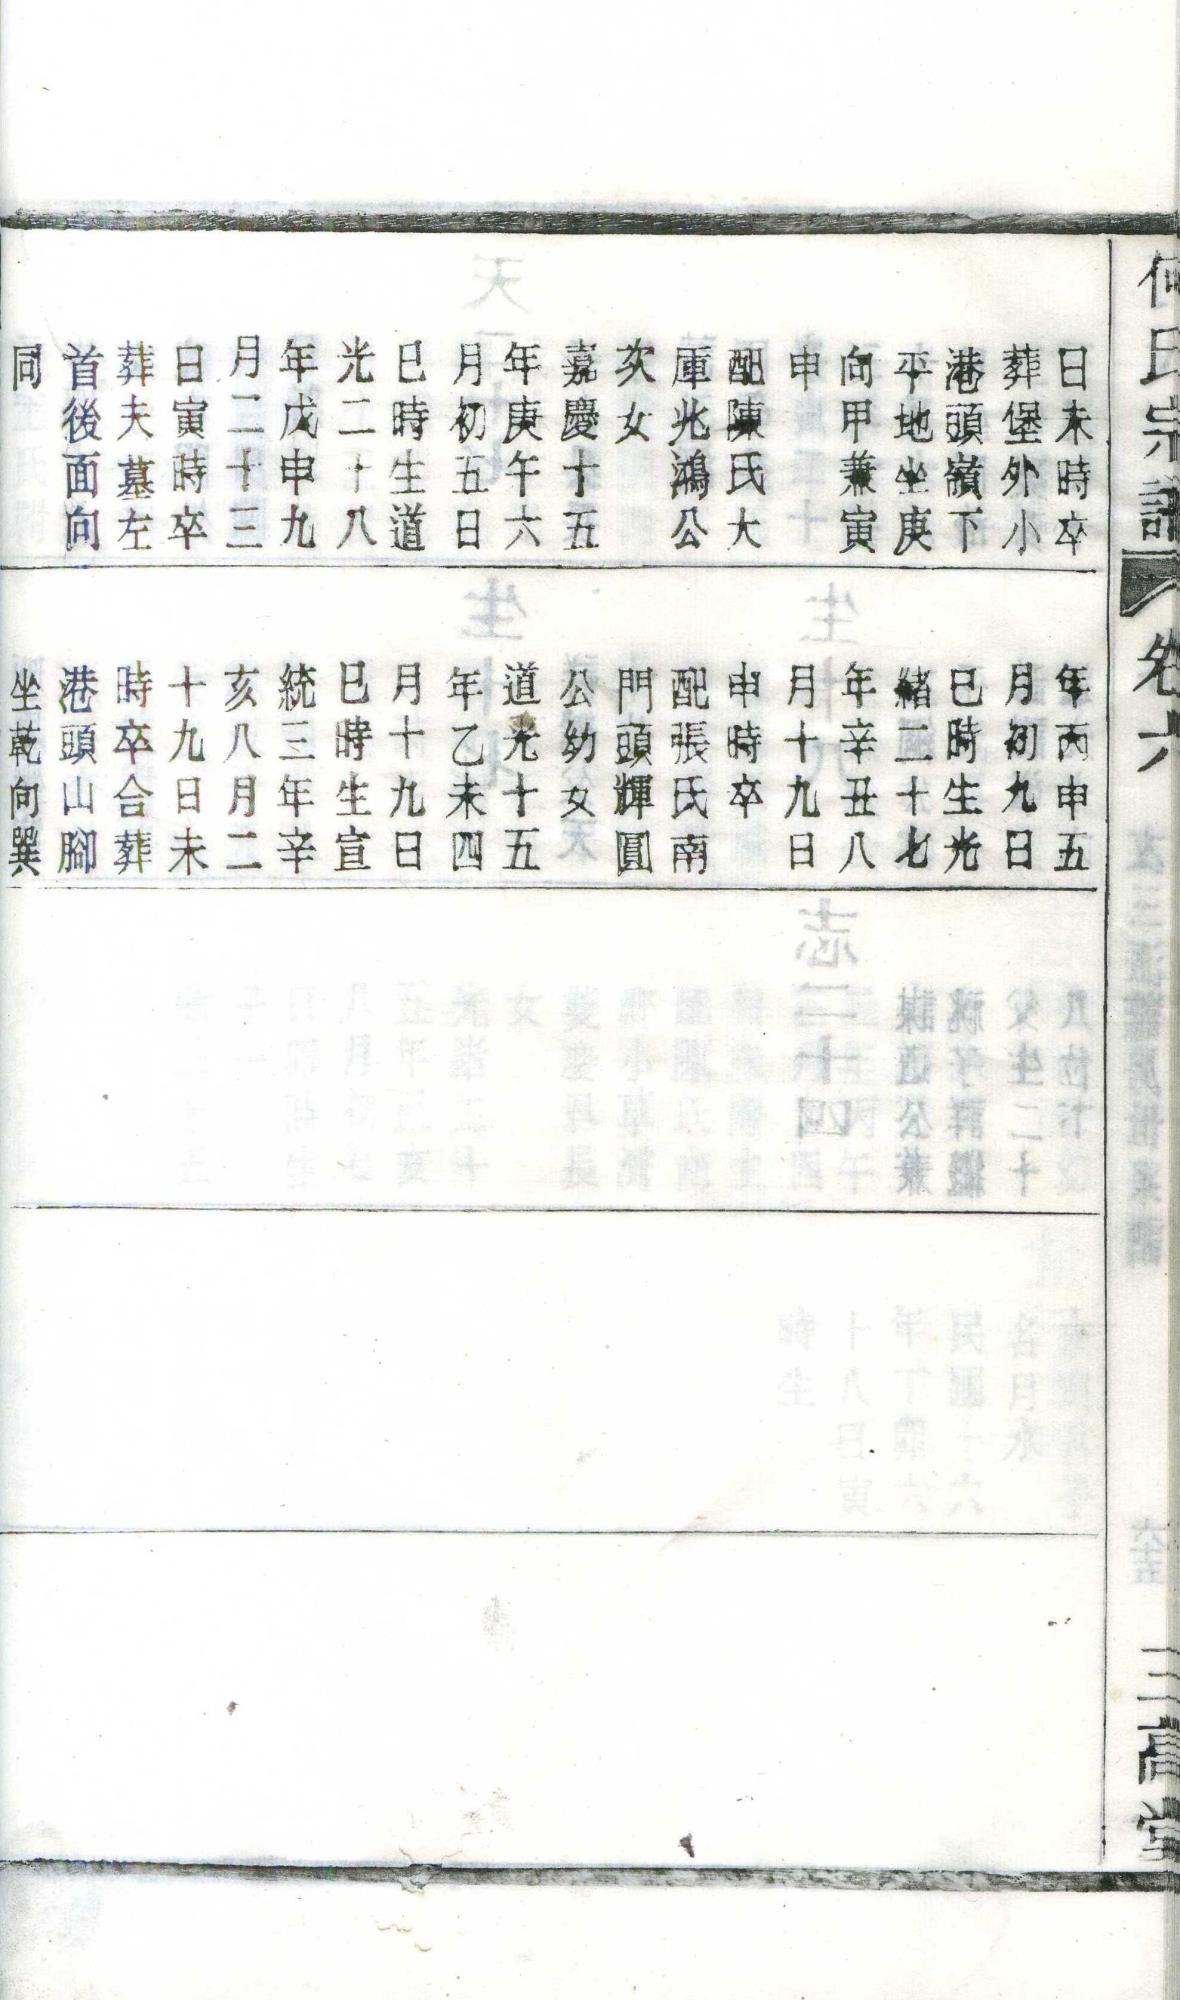 何氏宗譜
卷六
三高堂
日未時卒
葬堡外小
港頭嶺下
平地坐庚
向甲兼寅
申
配陳氏大
庫兆鴻公
次女
嘉慶十五
年庚午六
月初五日
巳時生道
光二十八
年戊申九
月二十三
日寅時卒
葬夫墓左
首後面向
同
年丙申五
月初九日
巳時生光
緒二十七
年辛丑八
月十九日
申時卒
配張氏南
門頭輝圓
公幼女
道光十五
年乙未四
月十九日
巳時生宣
統三年辛
亥八月二
十九日未
時卒合葬
港頭山腳
坐乾向巽